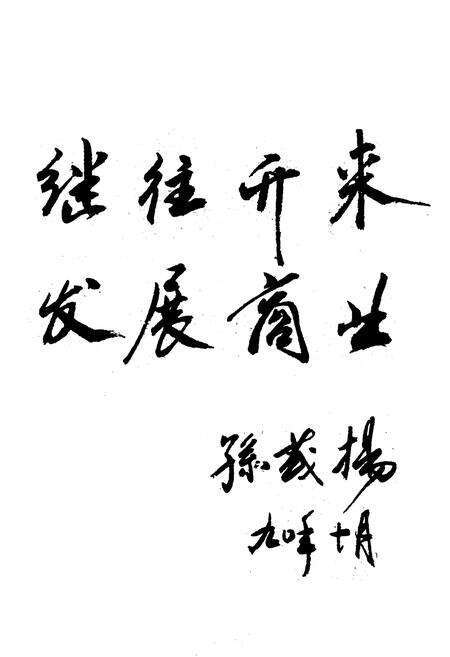 继往开来
发展商业
孫 揚
九〇年十月